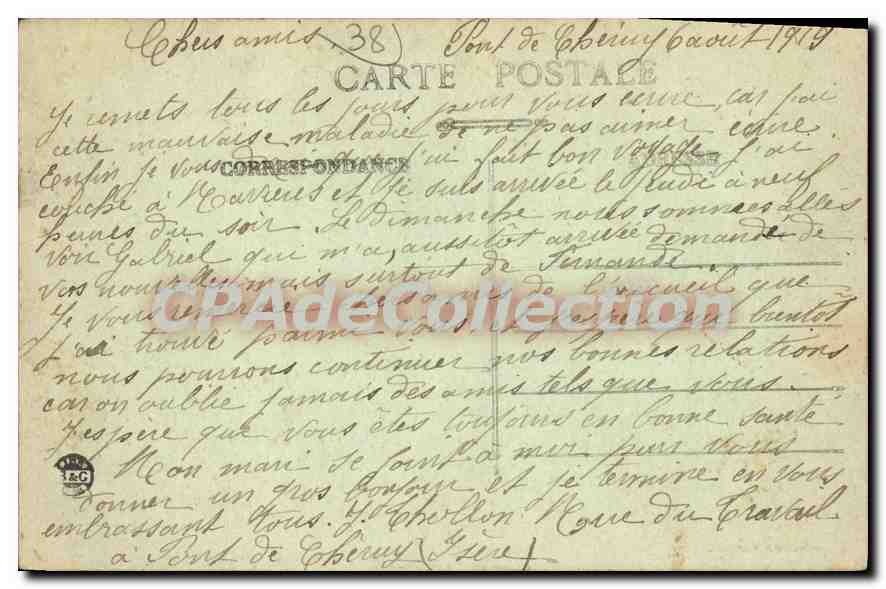 Chers amis 38 Pont de Chéruy 6 août 1919
CARTE POSTALE
Je remets tous les jours pour vous écrire, car j'ai
cette mauvaise maladie de ne pas aimer écrire.
CORRESPONDANCE
ADRESSE
Enfin je vous j'ai fait bon voyage j'ai
couché à et je suis arrivée le jeudi à neuf
heures du soir. Le dimanche nous sommes allés
voir Gabriel qui m'a, aussitôt arrivée demandé de
vos nouvelles mais surtout de Fernande.
Je vous remercie de l'accueil que
CPAdeCollection
j'ai trouvé parmi vous et j'espère bientôt
nous pourrons continuer nos bonnes relations
car on oublie jamais des amis tels que vous.
J'espère que vous êtes toujours en bonne santé
Mon mari se joint à moi pour vous
donner un gros bonjour et je termine en vous
embrassant tous. J. Chollon Rue du
à Pont de Chéruy (Isère)
B&G